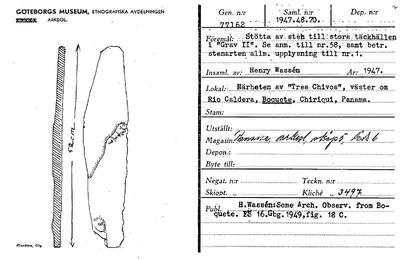 GÖTEBORGS MUSEUM, ETNOGRAFISKA AVDELNINGEN
ARKEOL.
52 CM
Gen. n:r
77162
Saml. n:r
1947.48.70.
Dep. n:r
Föremål: Stötta av sten till stora täckhällen
i "Grav II". Se anm. till nr.58, samt betr.
stenarten allm. upplysning till nr.1.
Insaml. av: Henry Wassén År: 1947.
Lokal: Närheten av "Tree Chivos", väster om
Rio Caldera, Boquete, Chiriqui, Panama.
Stam:
Utställt:
Magasin: Panama arkeol. skåp 5, 6
Depon.:
Byte till:
Negat. n:r Teckn. n:r
Skiopt. „ Kliché „ 3497
Publ. H.Wassén:Some Arch. Observ. from Bo-
quete. ES 16.Gbg.1949,fig. 18 C.